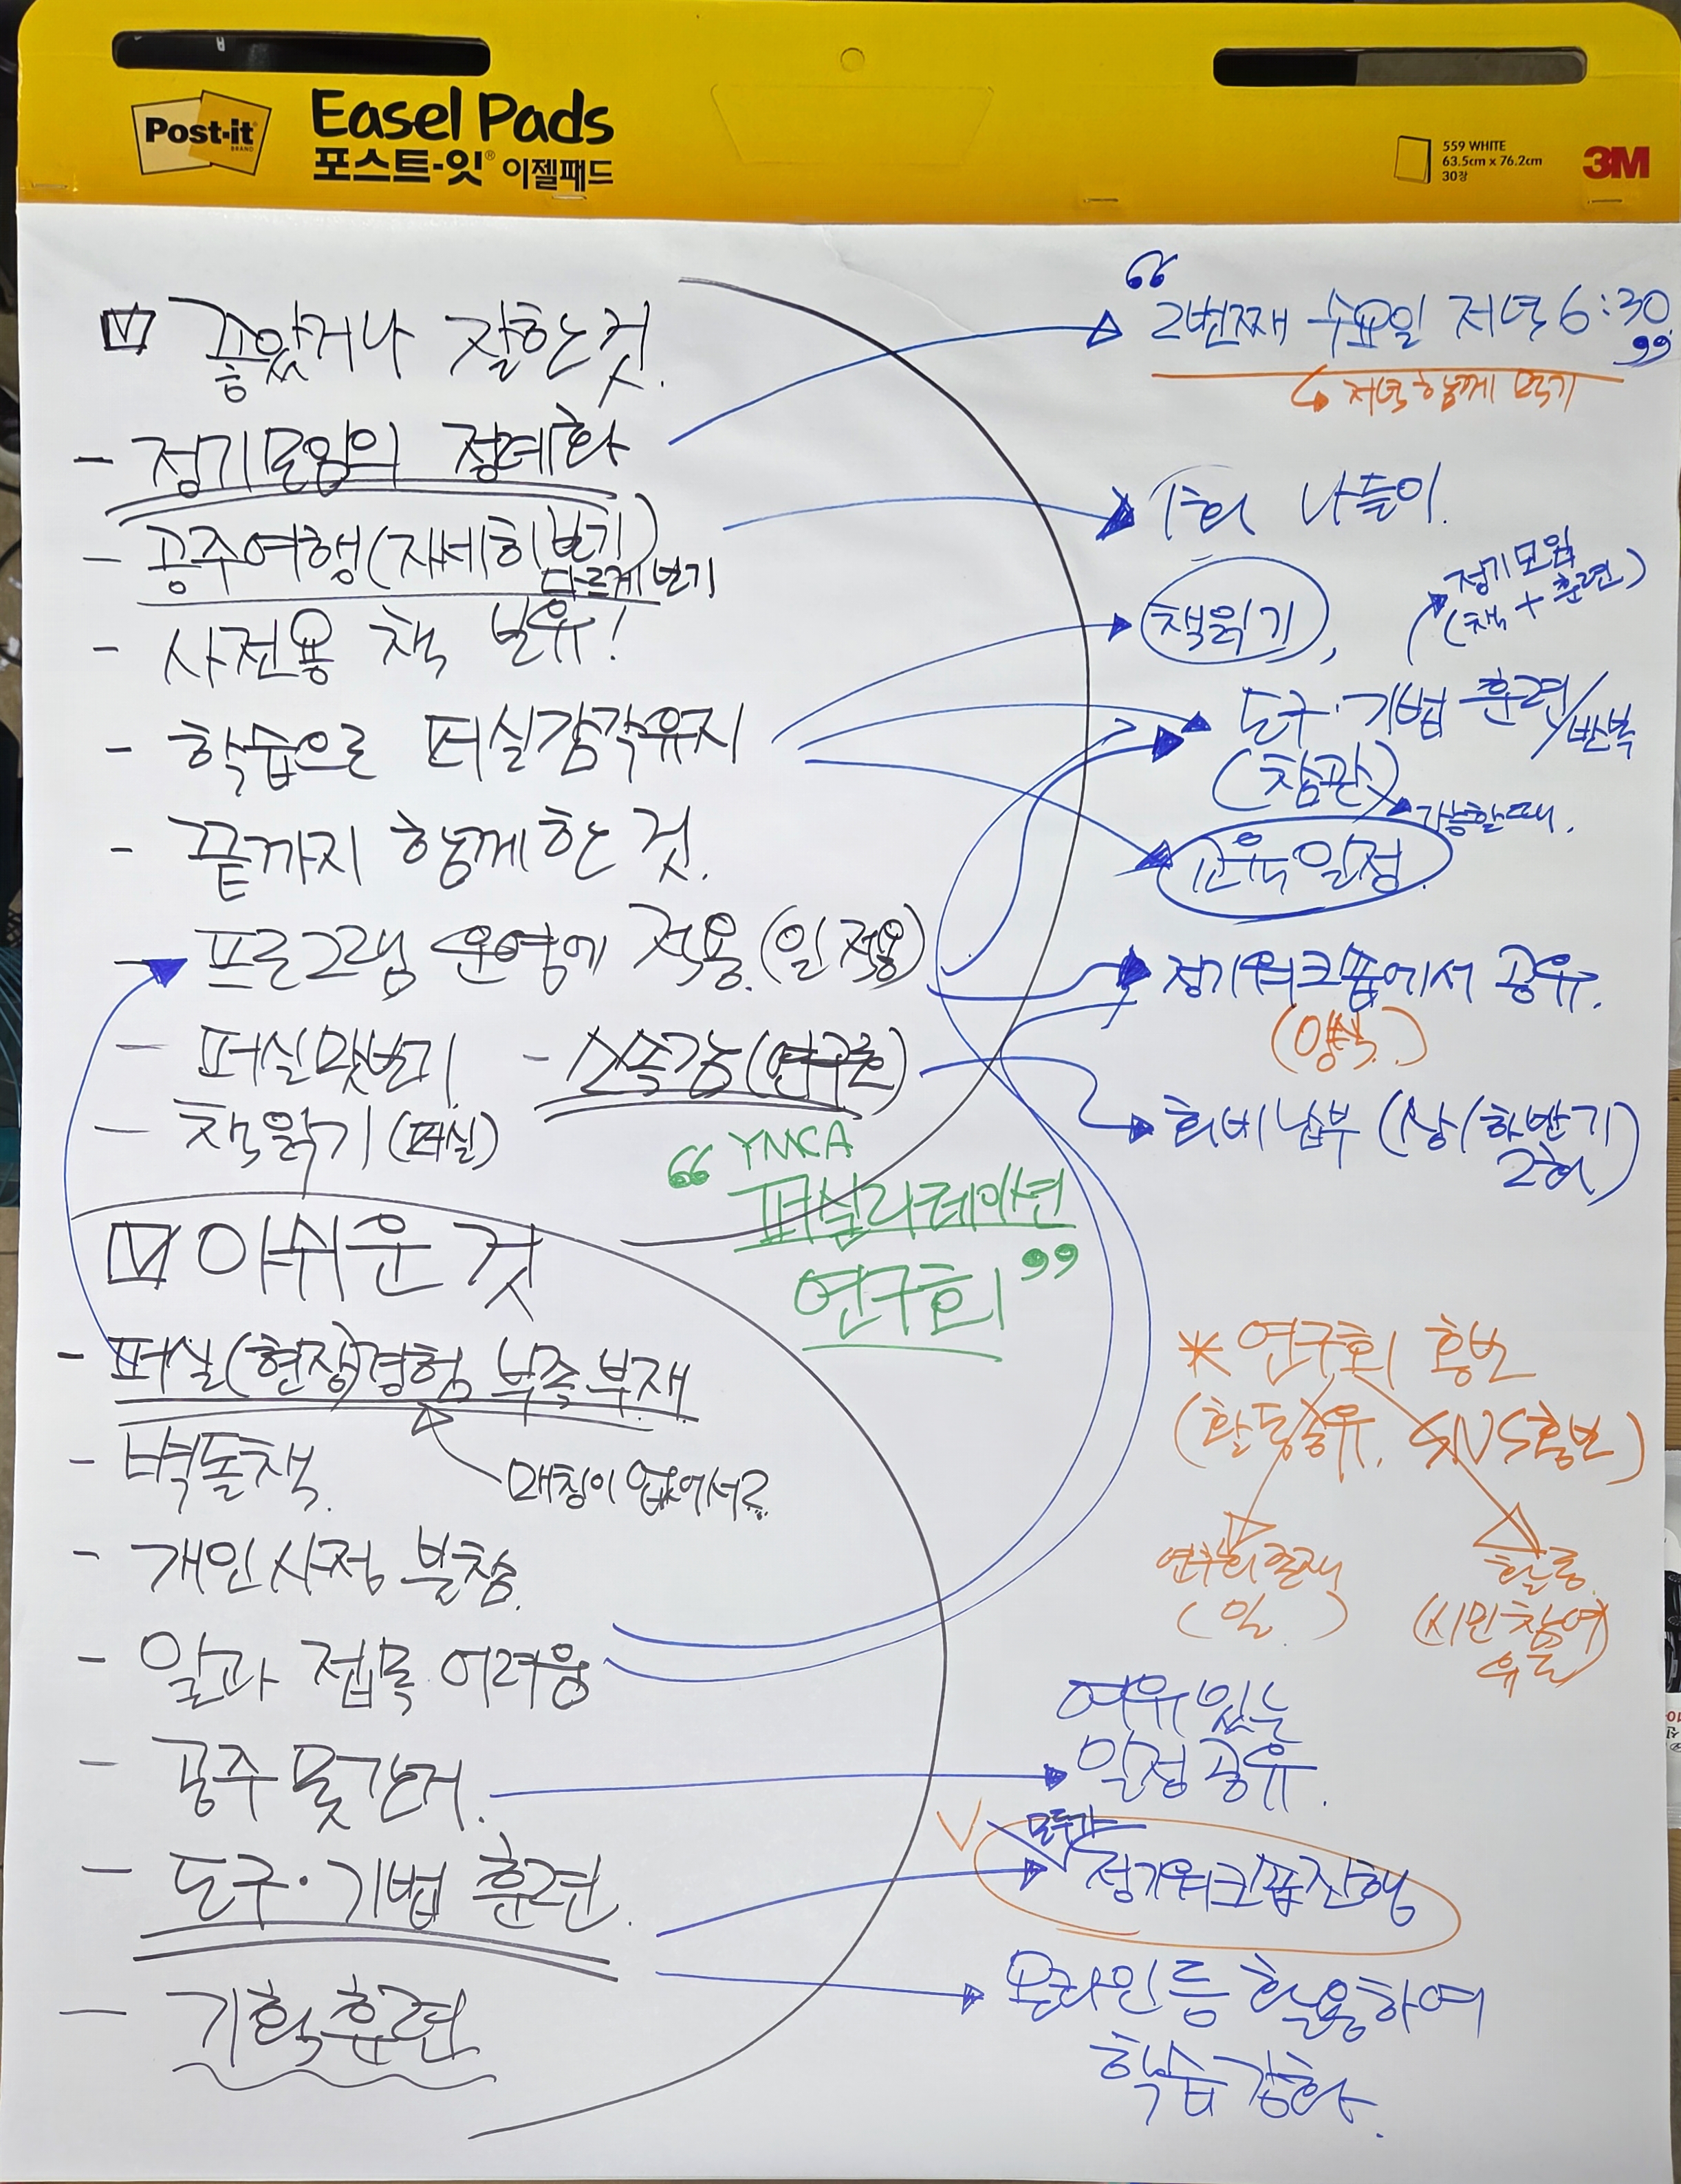 Post-it
BRAND
Easel Pads
포스트-잇® 이젤패드
559 WHITE
63.5cm x 76.2cm
30장
3M
좋았거나 잘한 것.
- 정기모임의 정례화
- 공주여행(자세히 보기)
다르게 보기
- 사전용 책 보유!
- 학습으로 퍼실감각유지
- 끝까지 함께 한 것.
- 프로그램 운영에 적용.(일 적용)
- 퍼실맛보기 - 소속감(연구회)
- 책읽기 (퍼실)
“ YMCA
퍼실리테이션
연구회 ”
아쉬운 것
- 퍼실(현장)경험 부족 부재
매칭이 없어서?
- 벽돌책
- 개인사정 불참.
- 일과 접목 어려움
- 공주 못간거.
- 도구·기법 훈련.
- 기획훈련
“ 2번째 수요일 저녁 6:30 ”
저녁 함께 먹기
1회 나들이.
책읽기,
정기모임
(책 + 훈련)
도구·기법 훈련/반복
(참관)
가능할때.
교육일정.
정기워크숍에서 공유.
(양식.)
회비 납부 (상/하반기
2회)
* 연구회 홍보
(활동공유, SNS홍보)
연구회존재
(일.)
활동.
(시민참여
유도)
여유 있는
일정 공유.
모두가
정기워크숍진행
온라인 등 활용하여
학습 강화.